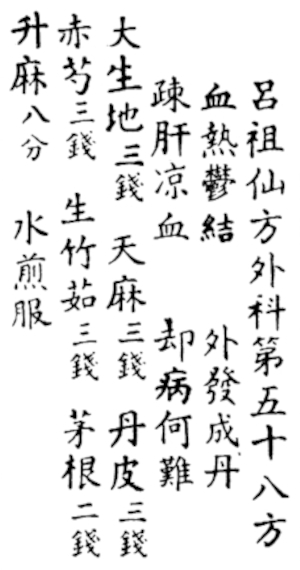 呂祖仙方外科第五十八方
血熱鬱結 外發成丹
疎肝凉血 却病何難
大生地三錢 天麻三錢 丹皮三錢
赤芍三錢 生竹茹三錢 茅根二錢
升麻八分 水煎服